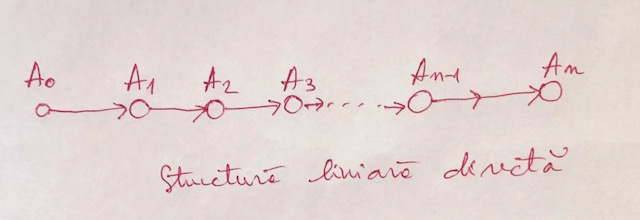 A0 A1 A2 A3 An-1 An
Structură liniară directă